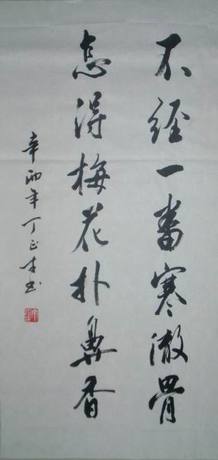 不经一番寒澈骨
怎得梅花扑鼻香
辛酉年丁正才书